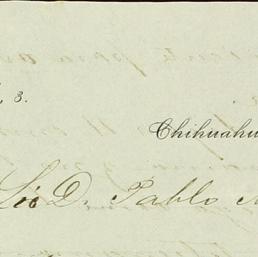 3.
Chihuahu
Lic D. Pablo